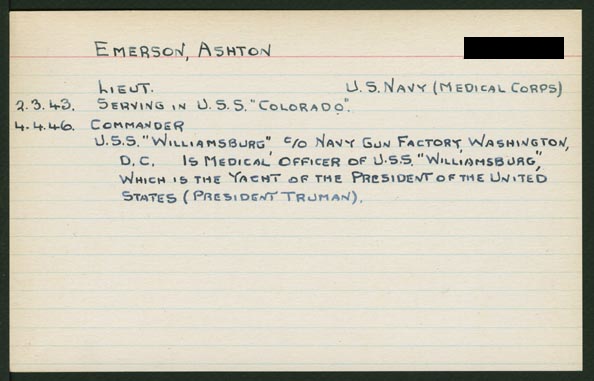 EMERSON, ASHTON
LIEUT. U.S. NAVY (MEDICAL CORPS)
2.3.43. SERVING IN U.S.S. "COLORADO".
4.4.46. COMMANDER
U.S.S. "WILLIAMSBURG", C/O NAVY GUN FACTORY, WASHINGTON,
D.C. IS MEDICAL OFFICER OF U.S.S. "WILLIAMSBURG",
WHICH IS THE YACHT OF THE PRESIDENT OF THE UNITED
STATES (PRESIDENT TRUMAN).